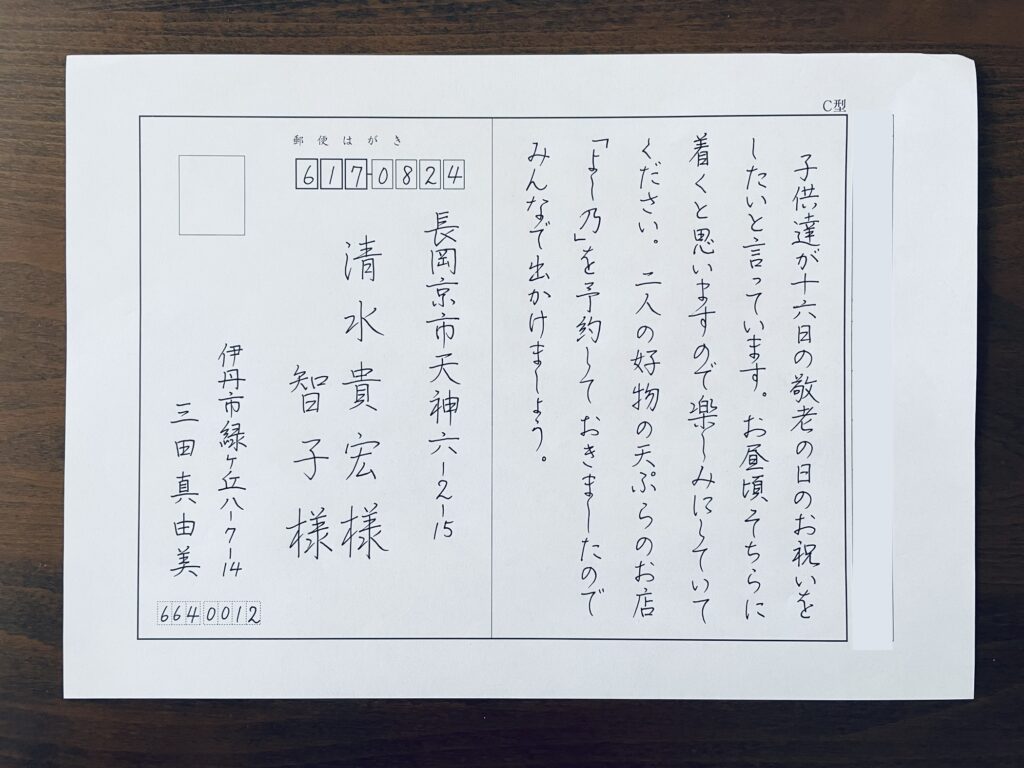 C型
子供達が十六日の敬老の日のお祝いを
したいと言っています。お昼頃そちらに
着くと思いますので楽しみにしていて
ください。二人の好物の天ぷらのお店
「よし乃」を予約しておきましたので
みんなで出かけましょう。
郵便はがき
617-0824
長岡京市天神六-2-15
清水貴宏様
智子様
伊丹市緑ヶ丘八-7-14
三田真由美
6640012